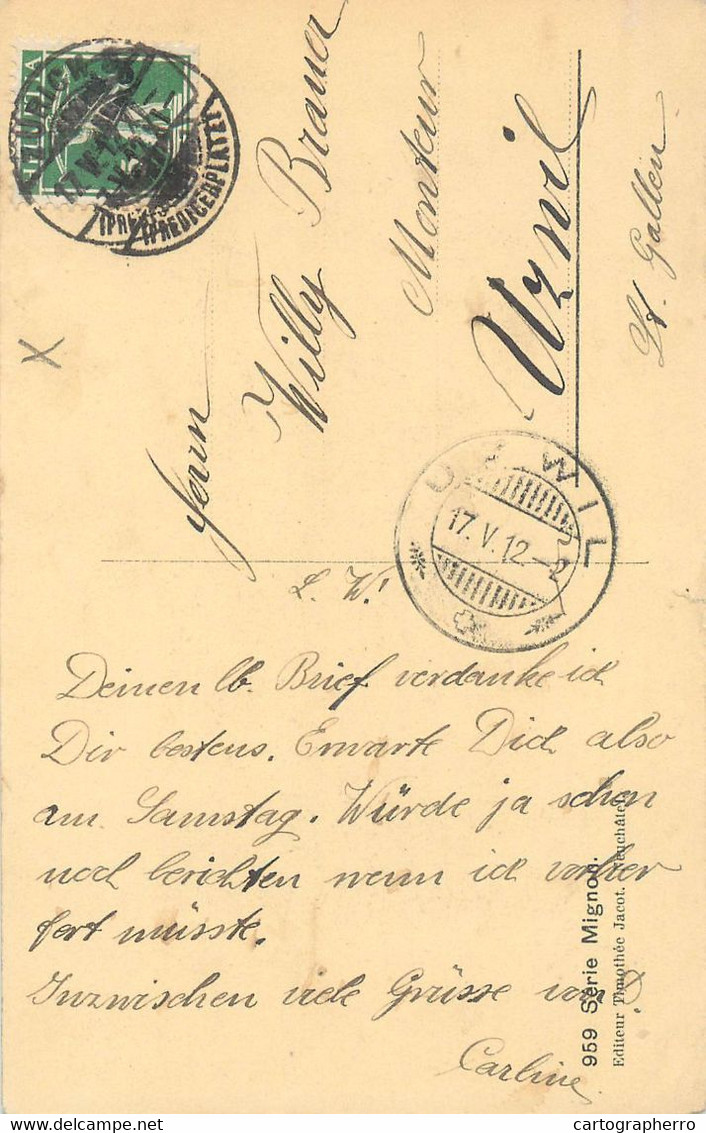 HELVETIA
ZÜRICH
17.V.12
(PREDIGERPLATZ)
Herrn
Willy Brauer
Monteur
Uzwil
St. Gallen
UZWIL
17.V.12.-2
L. W!
Deinen lb. Brief verdanke ich
Dir bestens. Erwarte Dich also
am Samstag. Würde ja schon
noch berichten wenn ich vorher
fort müsste.
Inzwischen viele Grüsse von
Carline.
959 Série Mignon.
Editeur Timothée Jacot. Neuchâtel
X
cartographerro
delcampe.net